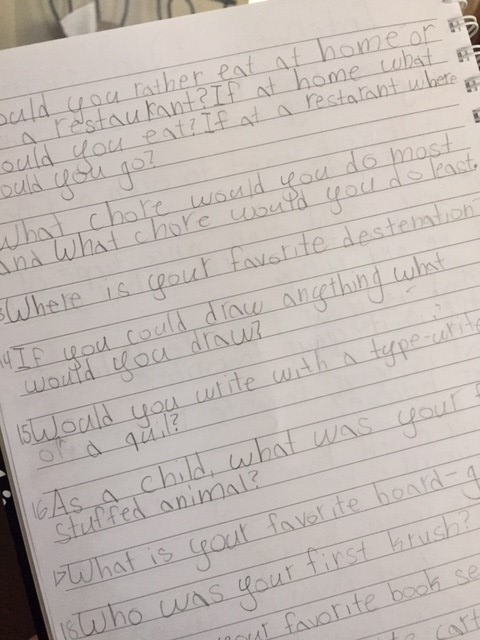 ould you rather eat at home or
a restaurant? If at home what
ould you eat? If at a restarant where
ould you go?
What chore would you do most
and What chore would you do least.
Where is your favorite desteration
14 If you could draw anything what
would you draw?
15 Would you write with a type-write
or a quil?
16 As a child, what was your f
stuffed animal?
17 What is your favorite board-g
18 Who was your first krush?
your favorite book se
cart